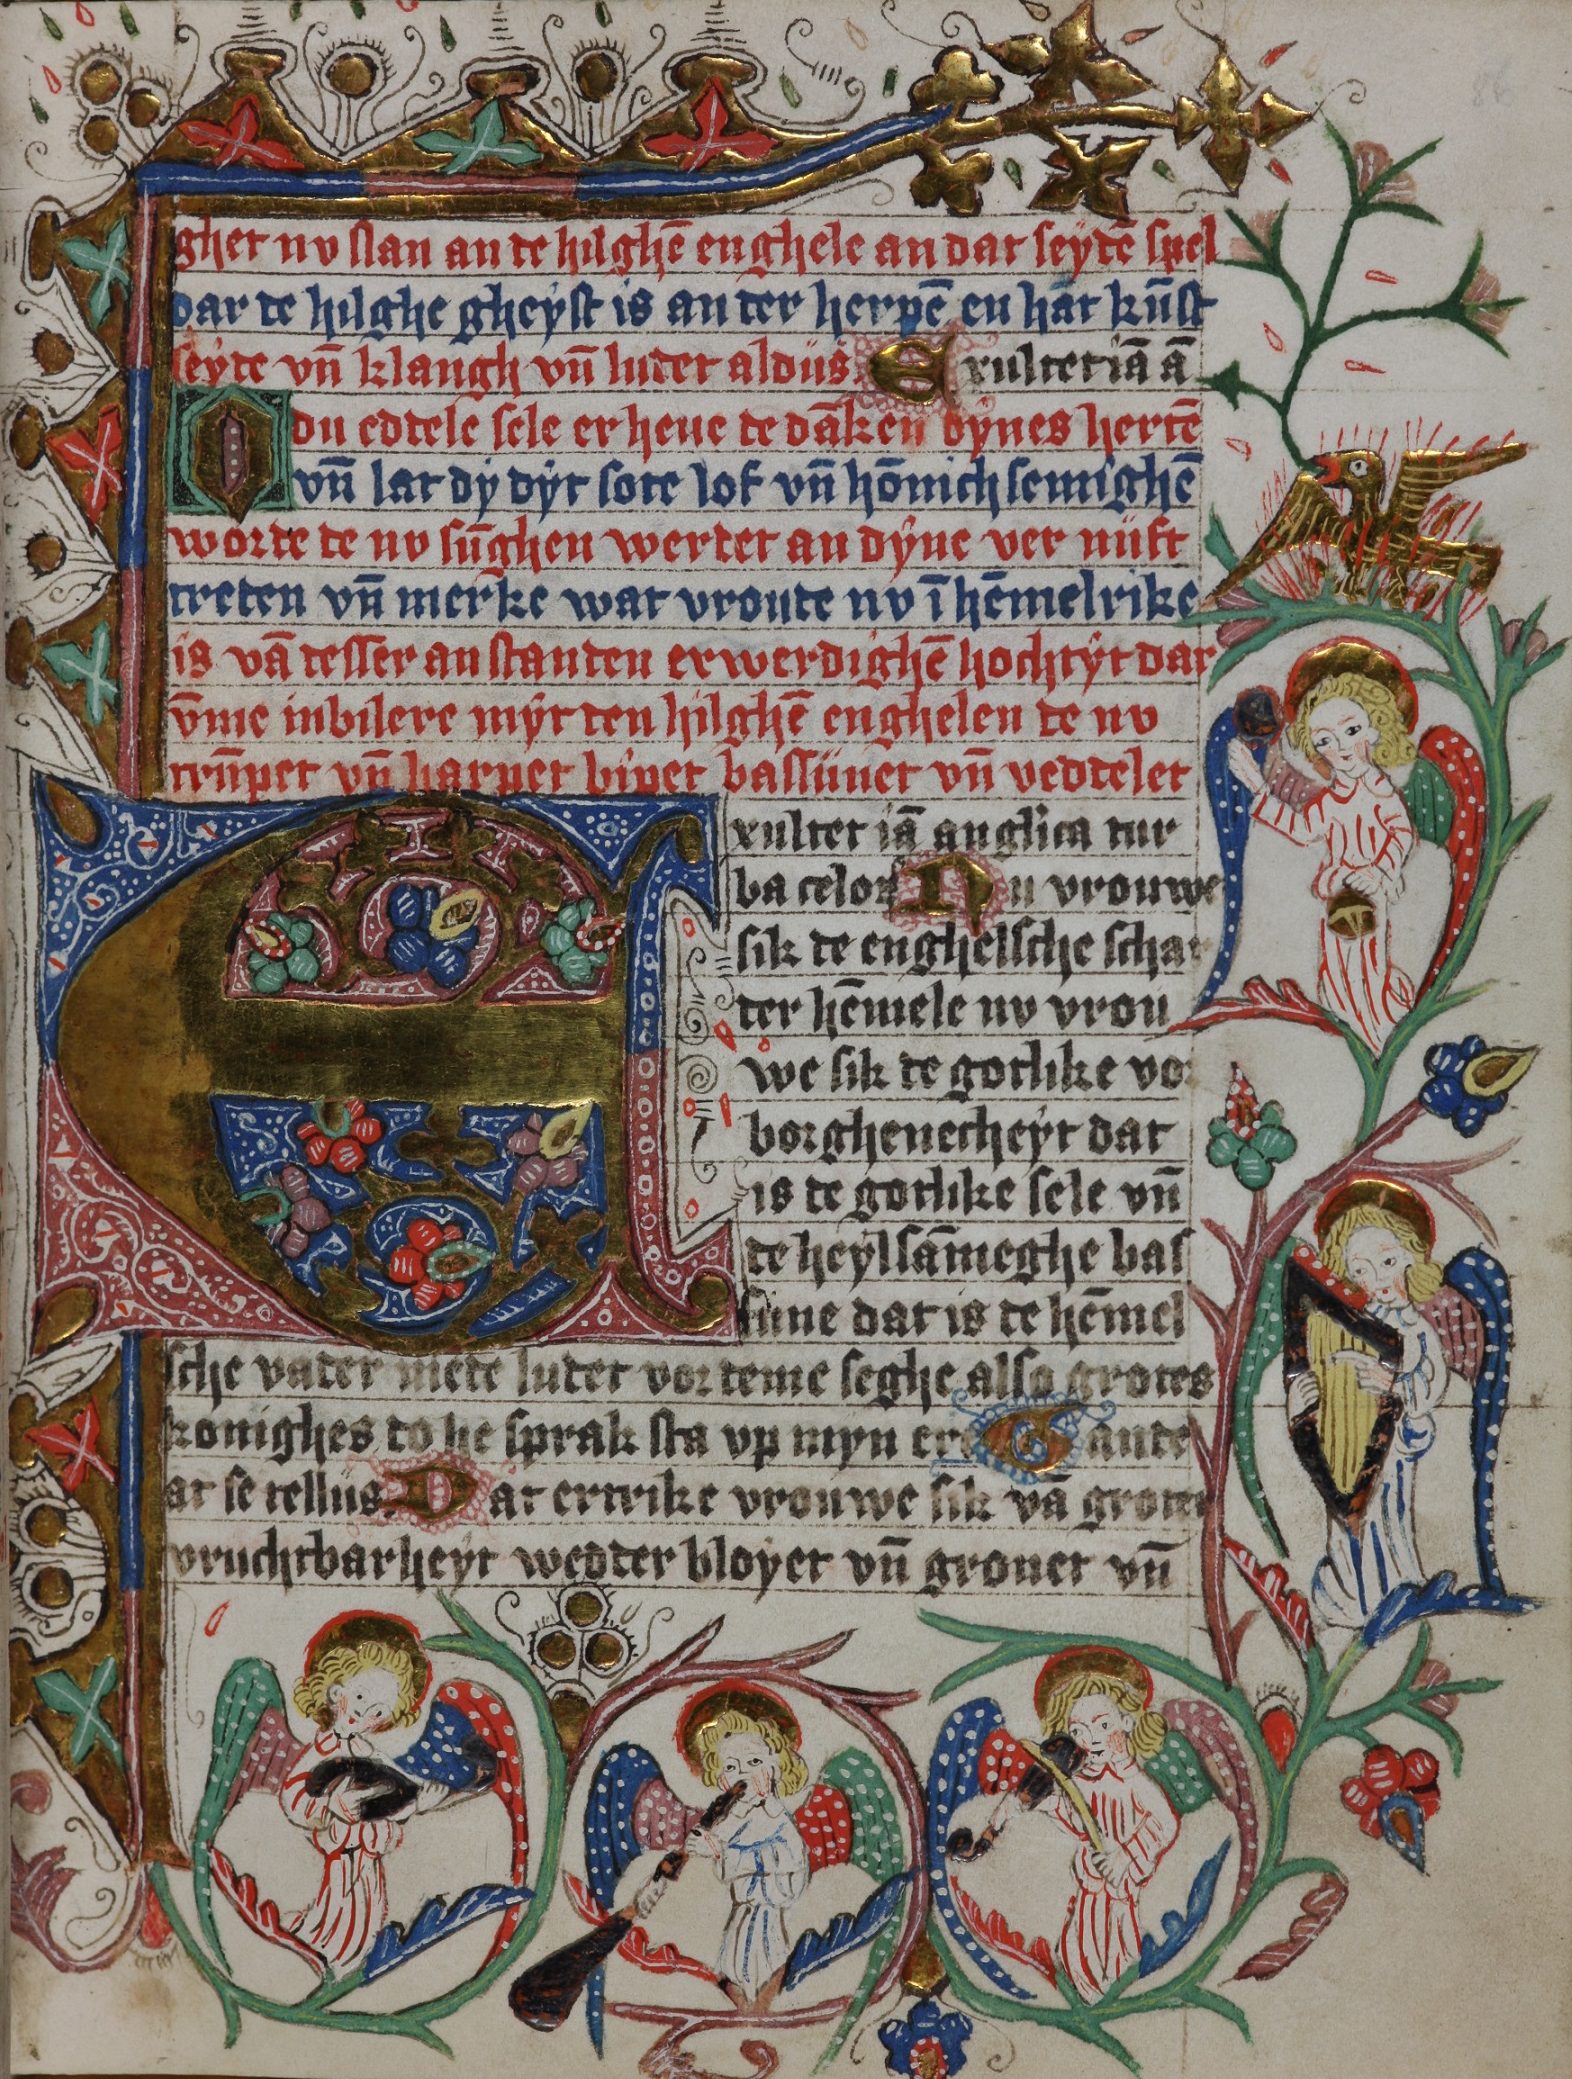 ghet nv slan an te hilghē enghele an dat seytē spel
dar te hilghe gheyst is an ter herpē en hāt kūst
seyte vn̄ klangh vn̄ ludet aldüs Exultet iā ā
O du edtele sele er heue te dākē dynes hertē
vn̄ lat dy dyt sote lof vn̄ hōnich semighē
worte te nv sūghen werdet an dyne ver nüft
treten vn̄ merke wat vroute nv ī hēmelrike
is vā tesser an standen erwerdighē hochtyt dar
vm̄e iubilere myt ten hilghē enghelen te nv
trūpet vn̄ harpet pipet bassünet vn̄ vedtelet
Exultet iā anglica tur
ba celoꝝ Nu vrouwe
sik te enghelsche schar
ter hēmele nv vrou
we sik te gotlike vor
borghenecheyt dat
is te gotlike sele vn̄
te heylsāmeghe bas
süne dat is te hēmel
sche vader mede ludet vor teme seghe also grotes
konighes to he sprak sta vp myn ere Gaude
at se tellüs Dat ertrike vrouwe sik vā groter
vruchtbarheyt wedter bloyet vn̄ gronet vn̄